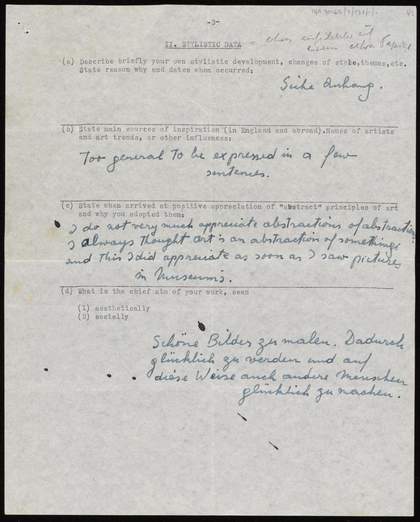 -3-
II. STYLISTIC DATA
(a) Describe briefly your own stylistic development, changes of style, themes, etc.
State reason why and dates when occurred:
Siehe Anhang.
(b) State main sources of inspiration (in England and abroad). Names of artists
and art trends, or other influences:
Too general to be expressed in a few
sentences.
(c) State when arrived at positive appreciation of "abstract" principles of art
and why you adopted them:
I do not very much appreciate abstractions of abstractions
I always thought art is an abstraction of somethings
and this I did appreciate as soon as I saw pictures
in Museums.
(d) What is the chief aim of your work, seen
(1) aesthetically
(2) socially
Schöne Bilder zu malen. Dadurch
glücklich zu werden und auf
diese Weise auch andere Menschen
glücklich zu machen.